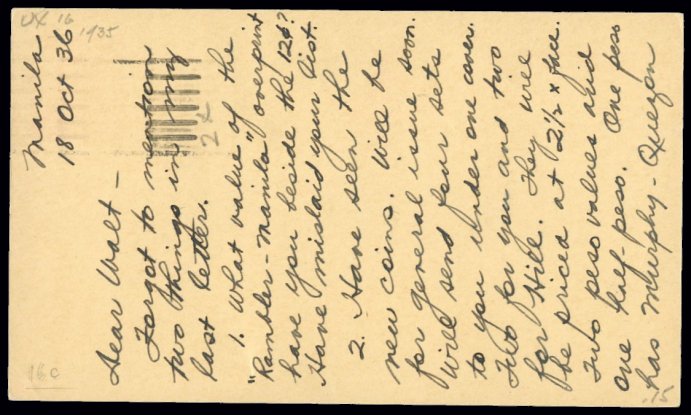 UX 16
1935
Manila
18 Oct 36
2x
Dear Walt –
Forgot to mention
two things in my
last letter.
1. What value of the
"Rambler-Manila" overprint
have you beside the 12¢?
Have mislaid your list.
2. Have seen the
new coins. Will be
for general issue soon.
Will send four sets
to you under one cover.
Two for you and two
for Hill. They will
be priced at 2 1/2 x face.
Two peso values and
one half-peso. One peso
has Murphy - Quezon
16c
.75